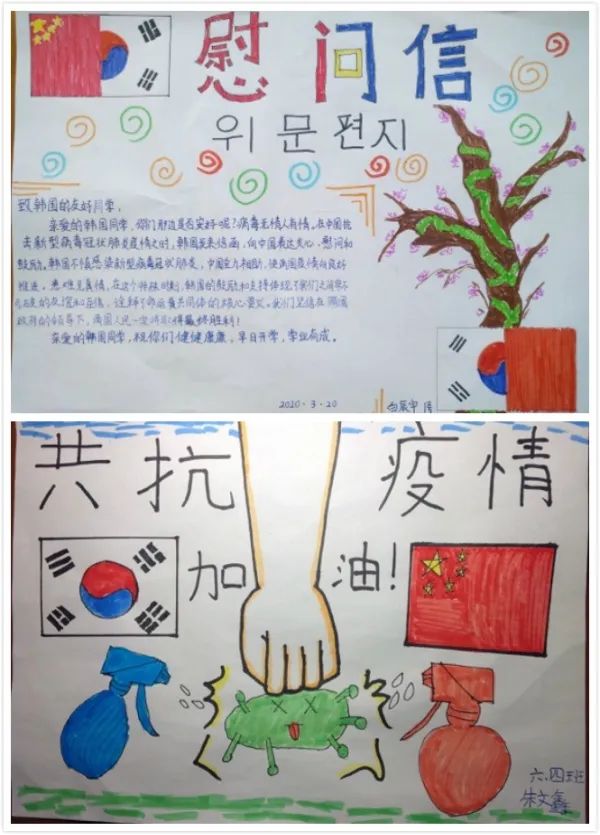 慰问信
위문편지
致韩国的友好同学，
亲爱的韩国同学，你们那边是否安好呢？病毒无情人有情，在中国抗
击新型病毒冠状肺炎疫情之时，韩国发来信函，向中国表达关心、慰问和
鼓励，韩国不慎感染新型病毒冠状肺炎，中国全力相助，使两国疫情向良好
推进，患难见真情，在这个特殊时刻，韩国的鼓励和支持体现了我们之间牢不
的友谊和互信，诠释了命运共同体的核心要义。我们坚信在两国
政府的领导下，两国人民一定将取得最终胜利！
亲爱的韩国同学，祝你们健健康康，早日开学，学业有成。
2020·3·20
共抗疫情
加油！
六.四班
朱文鑫